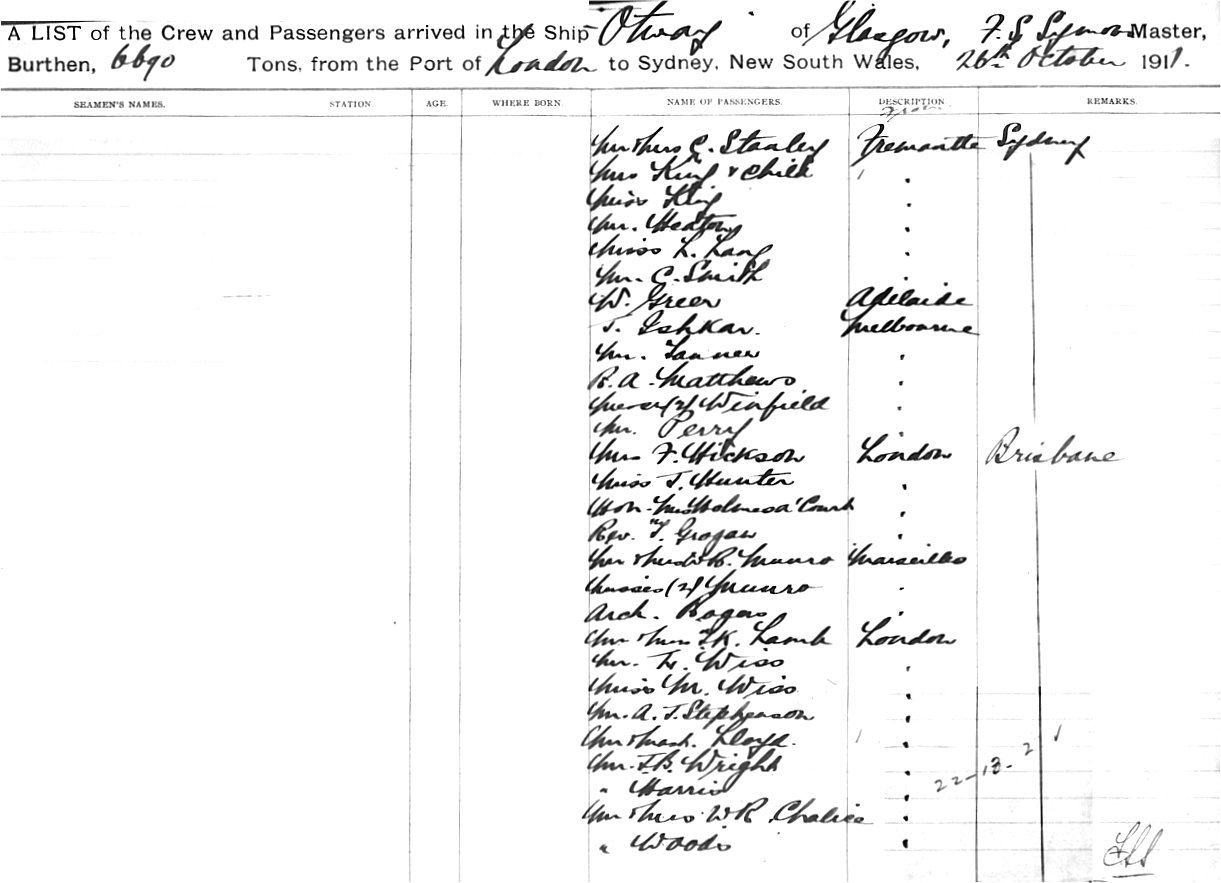 A LIST of the Crew and Passengers arrived in the Ship Otway of Glasgow, F. S Symons Master,
Burthen, 6690 Tons, from the Port of London to Sydney, New South Wales, 26th October 1911.
SEAMEN'S NAMES. STATION AGE. WHERE BORN. NAME OF PASSENGERS. DESCRIPTION REMARKS.
From
Mr & Mrs C. Stanley Fremantle Sydney
Mrs King & Child "
Miss King "
Mr. Heaton "
Miss L. Lang "
Mr. C. Smith "
W. Green Adelaide
T. Ishkar. Melbourne
Mr. Tanner "
R. A. Matthews "
(2) Winfield "
Mr. Perry "
Mrs F. Hickson London Brisbane
Miss J. Hunter "
Hon. Mrs Holmes a'Court "
Rev. T. Grogan "
Mr & Mrs R. Munro Marseilles
Misses (2) Munro "
Arch. Rogers "
Mr & Mrs T. K. Lamb London
Mr. L. Wiss "
Miss M. Wiss "
Mr. A. J. Stephenson "
Mr & Mast. Lloyd. "
Mr. J. B. Wright "
" Harris "
Mr & Mrs W R Chalice "
" Woods "
22-13-2 1